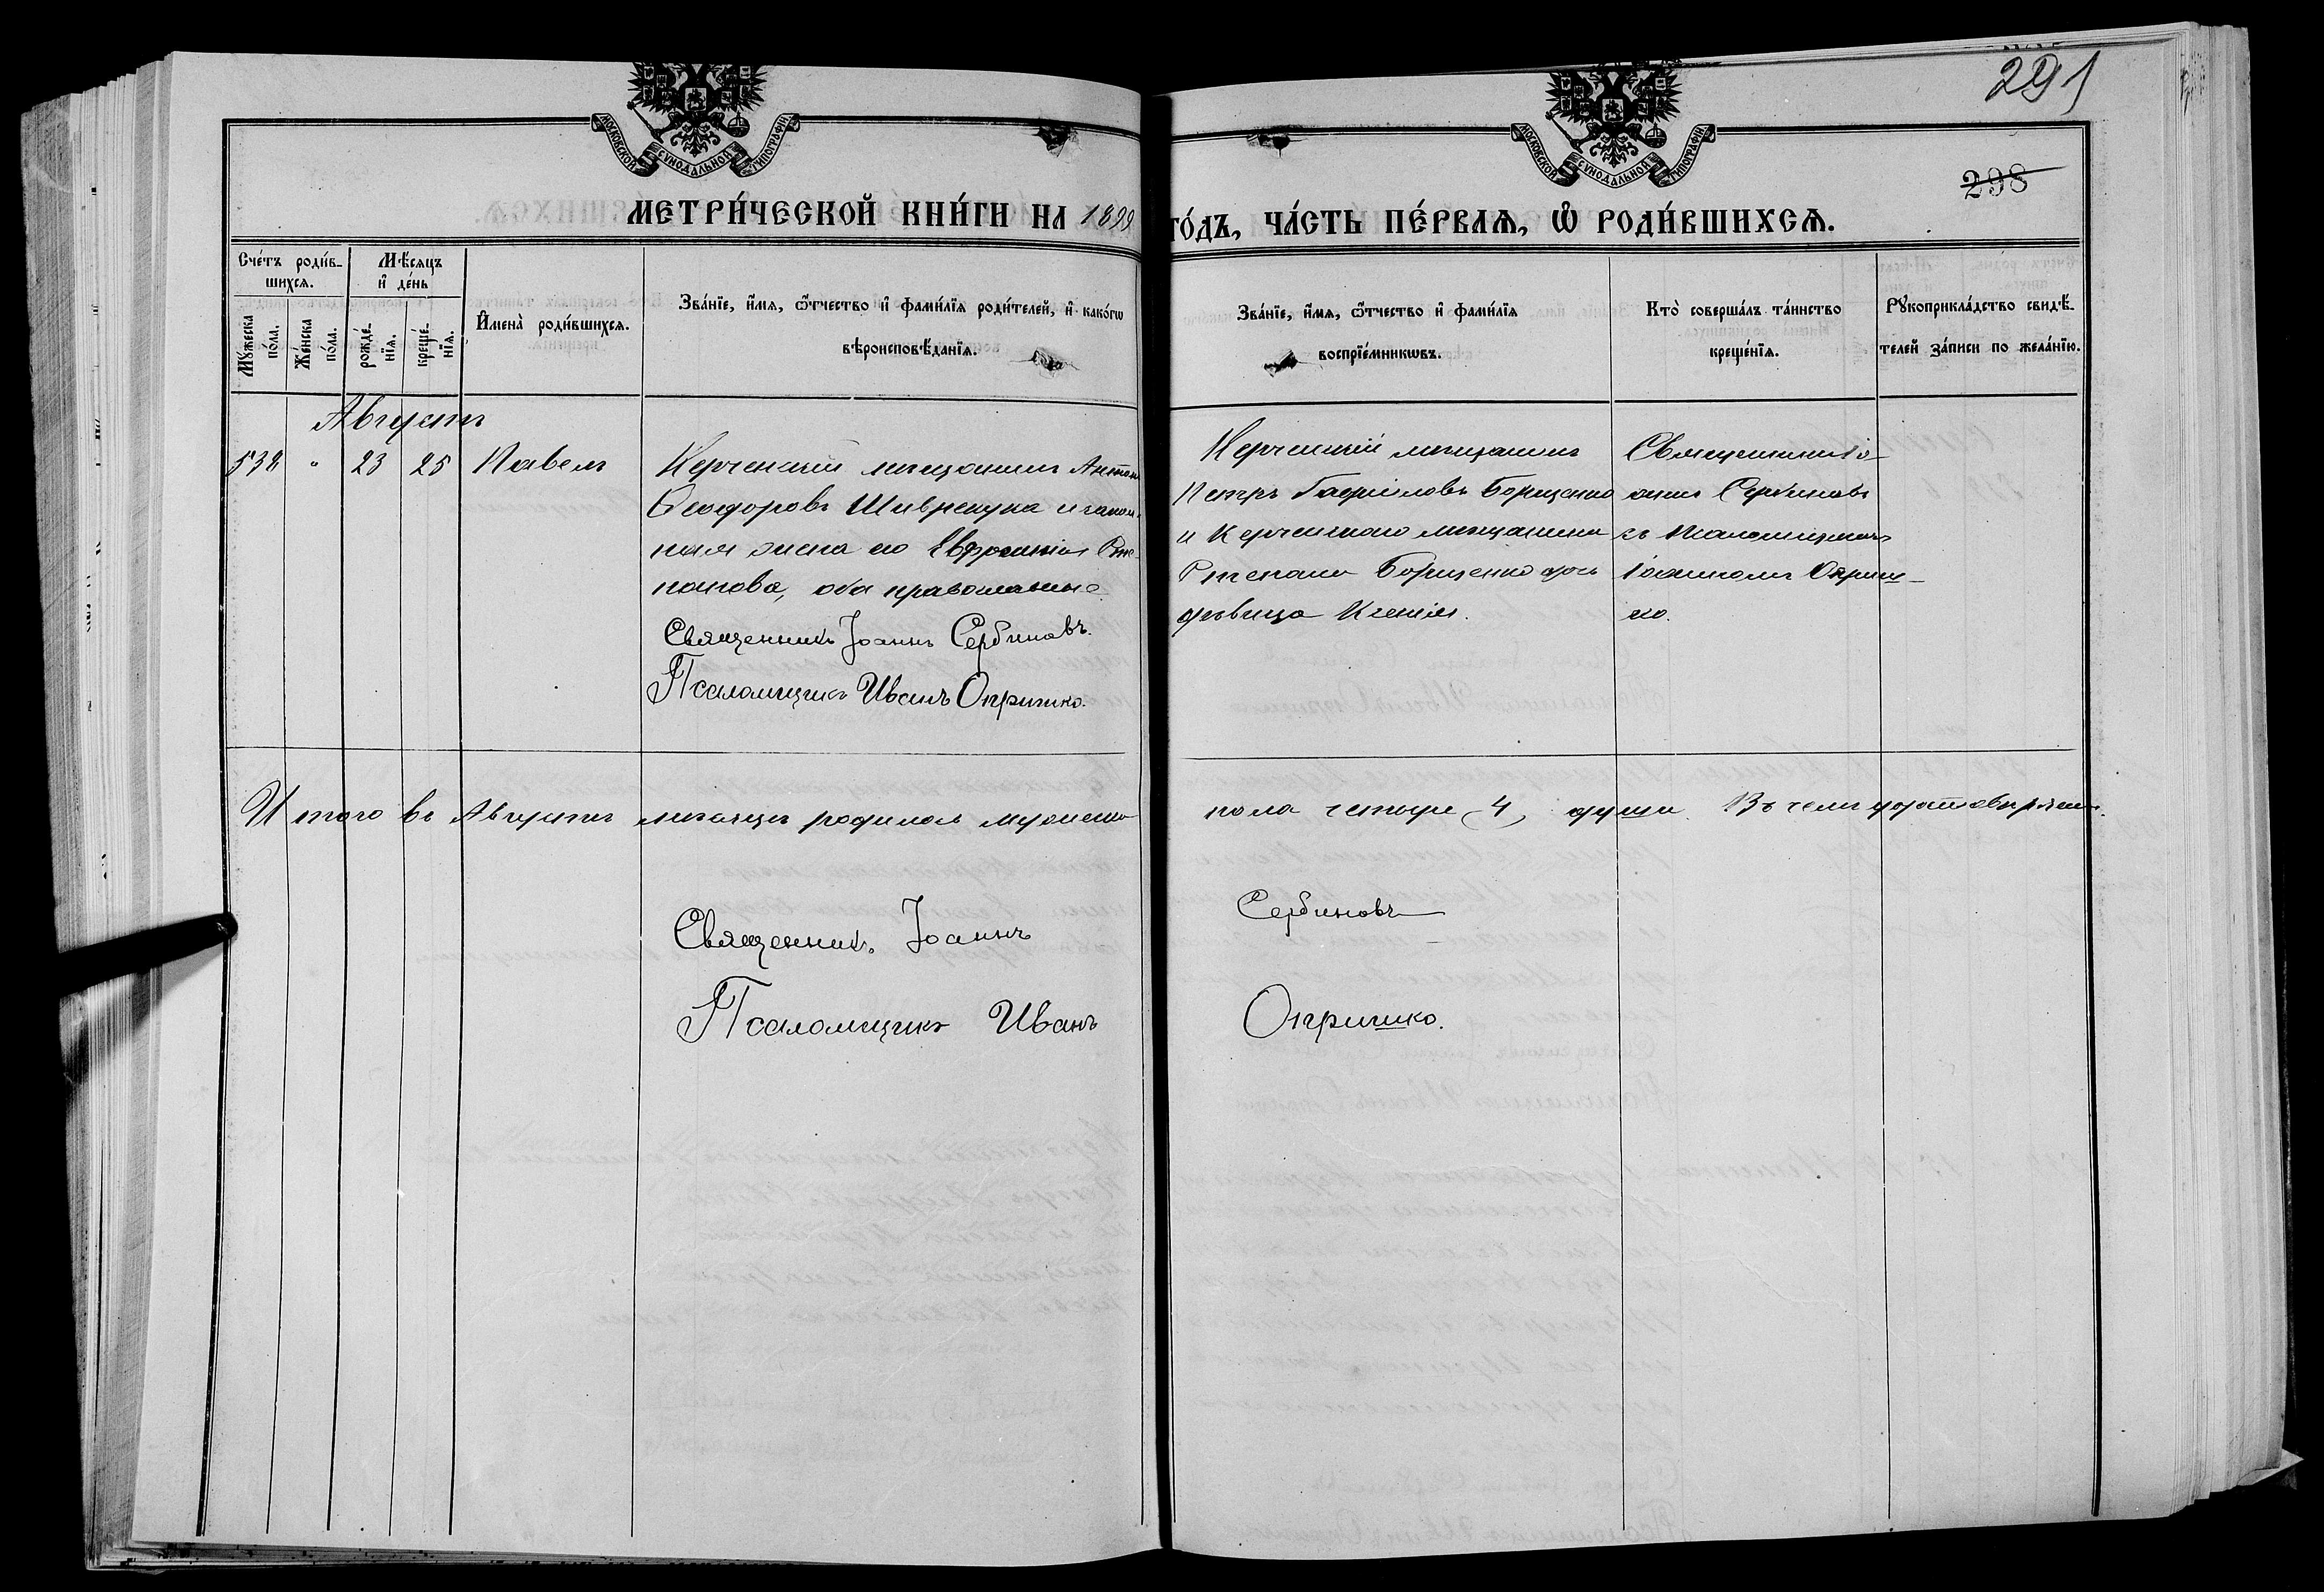 291
298
МОСКОВСКОЙ СѴНОДАЛЬНОЙ ТИПОГРАФІИ
МОСКОВСКОЙ СѴНОДАЛЬНОЙ ТИПОГРАФІИ
МЕТРИ́ЧЕСКОЙ КНИ́ГИ НА 1899
ГО́ДЪ, ЧА́СТЬ ПЕ́РВАѦ, Ѡ҆ РОДИ́ВШИХСѦ.
Сче́тъ роди́в-
шихсѧ.
Мꙋ́жеска
по́ла.
Же́нска
по́ла.
Мѣ́сѧцъ
и҆ де́нь
рожде́-
нїѧ.
креще́-
нїѧ.
И҆мена̀ роди́вшихсѧ.
Зва́нїе, и҆́мѧ, ѻ҆́тчество и҆ фами́лїѧ роди́телей, и҆ како́гѡ
вѣроисповѣ́данїѧ.
Зва́нїе, и҆́мѧ, ѻ҆́тчество и҆ фами́лїѧ
воспрїе́мникѡвъ.
Кто̀ соверша́лъ та́инство
креще́нїѧ.
Рꙋкоприкла́дство свидѣ́-
телей за́писи по жела́нїю.
Августъ
538 " 23 25 Павелъ
Керченскій мѣщанинъ Антонъ
Ѳеодоровъ и закон-
ная жена его Евфросинія Сте-
панова, оба православные.
Священникъ Іоаннъ Сербиновъ.
Псаломщикъ Иванъ Опришко.
Керченскій мѣщанинъ
Петръ Гавріиловъ Борищенко
и Керченскаго мѣщанина
Стефана Борищенко дочь
дѣвица Ксенія.
Священникъ Іо-
аннъ Сербиновъ
съ Псаломщикомъ
Іоанномъ Оприш-
ко.
Итого въ Августѣ мѣсяцѣ родилось мужеска
пола четыре (4) души. Въ чемъ и удостовѣряемъ.
Священникъ Іоаннъ Сербиновъ
Псаломщикъ Иванъ Опришко.